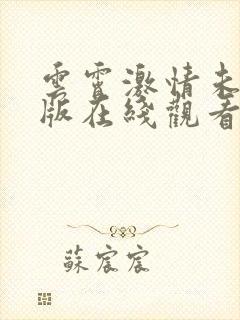 雲霄激情未
版在綫觀看
蘇宸宸